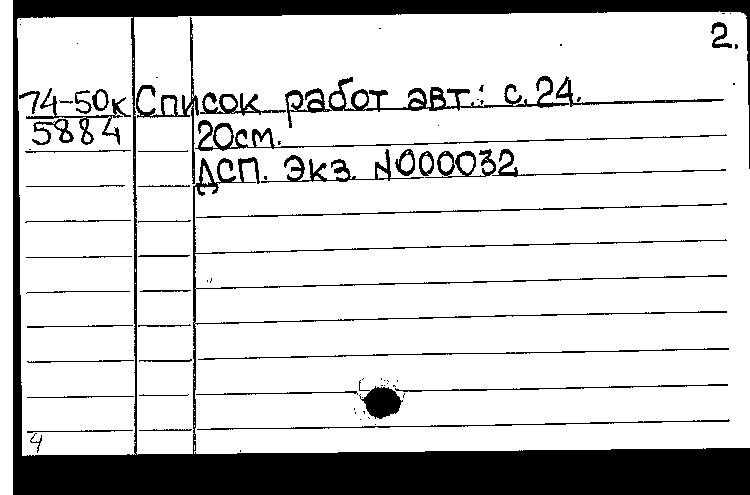 2.
74-50к Список работ авт.: с.24.
5884 20см.
ДСП. Экз. N000032
4